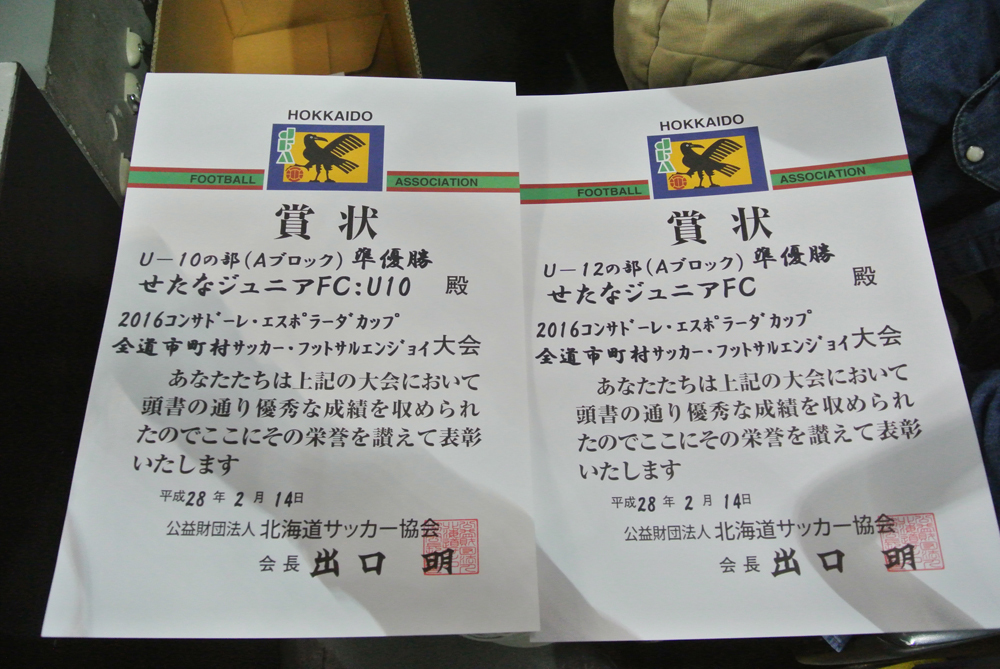 HOKKAIDO
JFA
FOOTBALL ASSOCIATION
賞状
U-10の部(Aブロック) 準優勝
せたなジュニアFC:U10 殿
2016コンサドーレ・エスポラーダカップ
全道市町村サッカー・フットサルエンジョイ大会
あなたたちは上記の大会において
頭書の通り優秀な成績を収められ
たのでここにその栄誉を讃えて表彰
いたします
平成28年2月14日
公益財団法人 北海道サッカー協会
会長 出口 明
HOKKAIDO
JFA
FOOTBALL ASSOCIATION
賞状
U-12の部(Aブロック) 準優勝
せたなジュニアFC 殿
2016コンサドーレ・エスポラーダカップ
全道市町村サッカー・フットサルエンジョイ大会
あなたたちは上記の大会において
頭書の通り優秀な成績を収められ
たのでここにその栄誉を讃えて表彰
いたします
平成28年2月14日
公益財団法人 北海道サッカー協会
会長 出口 明